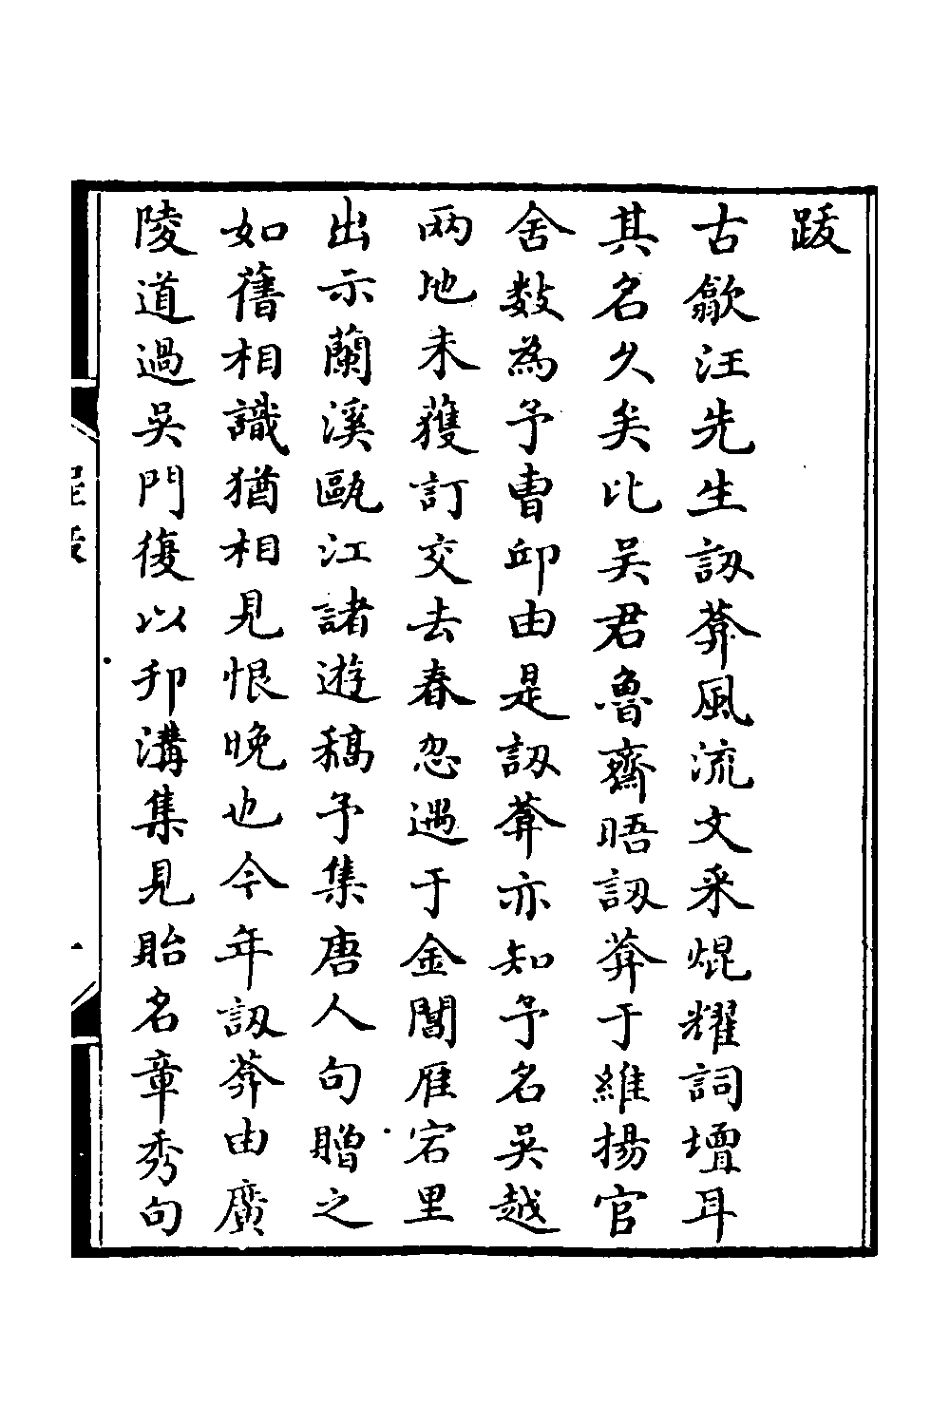 跋
古歙汪先生訒葊風流文采焜耀詞壇耳
其名久矣比吴君魯齋晤訒葊于維揚官
舍數為予曹邱由是訒葊亦知予名吳越
兩地未獲訂交去春忽遇于金閶雁宕里
出示蘭溪甌江諸遊稿予集唐人句贈之
如舊相識猶相見恨晚也今年訒葊由廣
陵道過吳門復以邗溝集見貽名章秀句